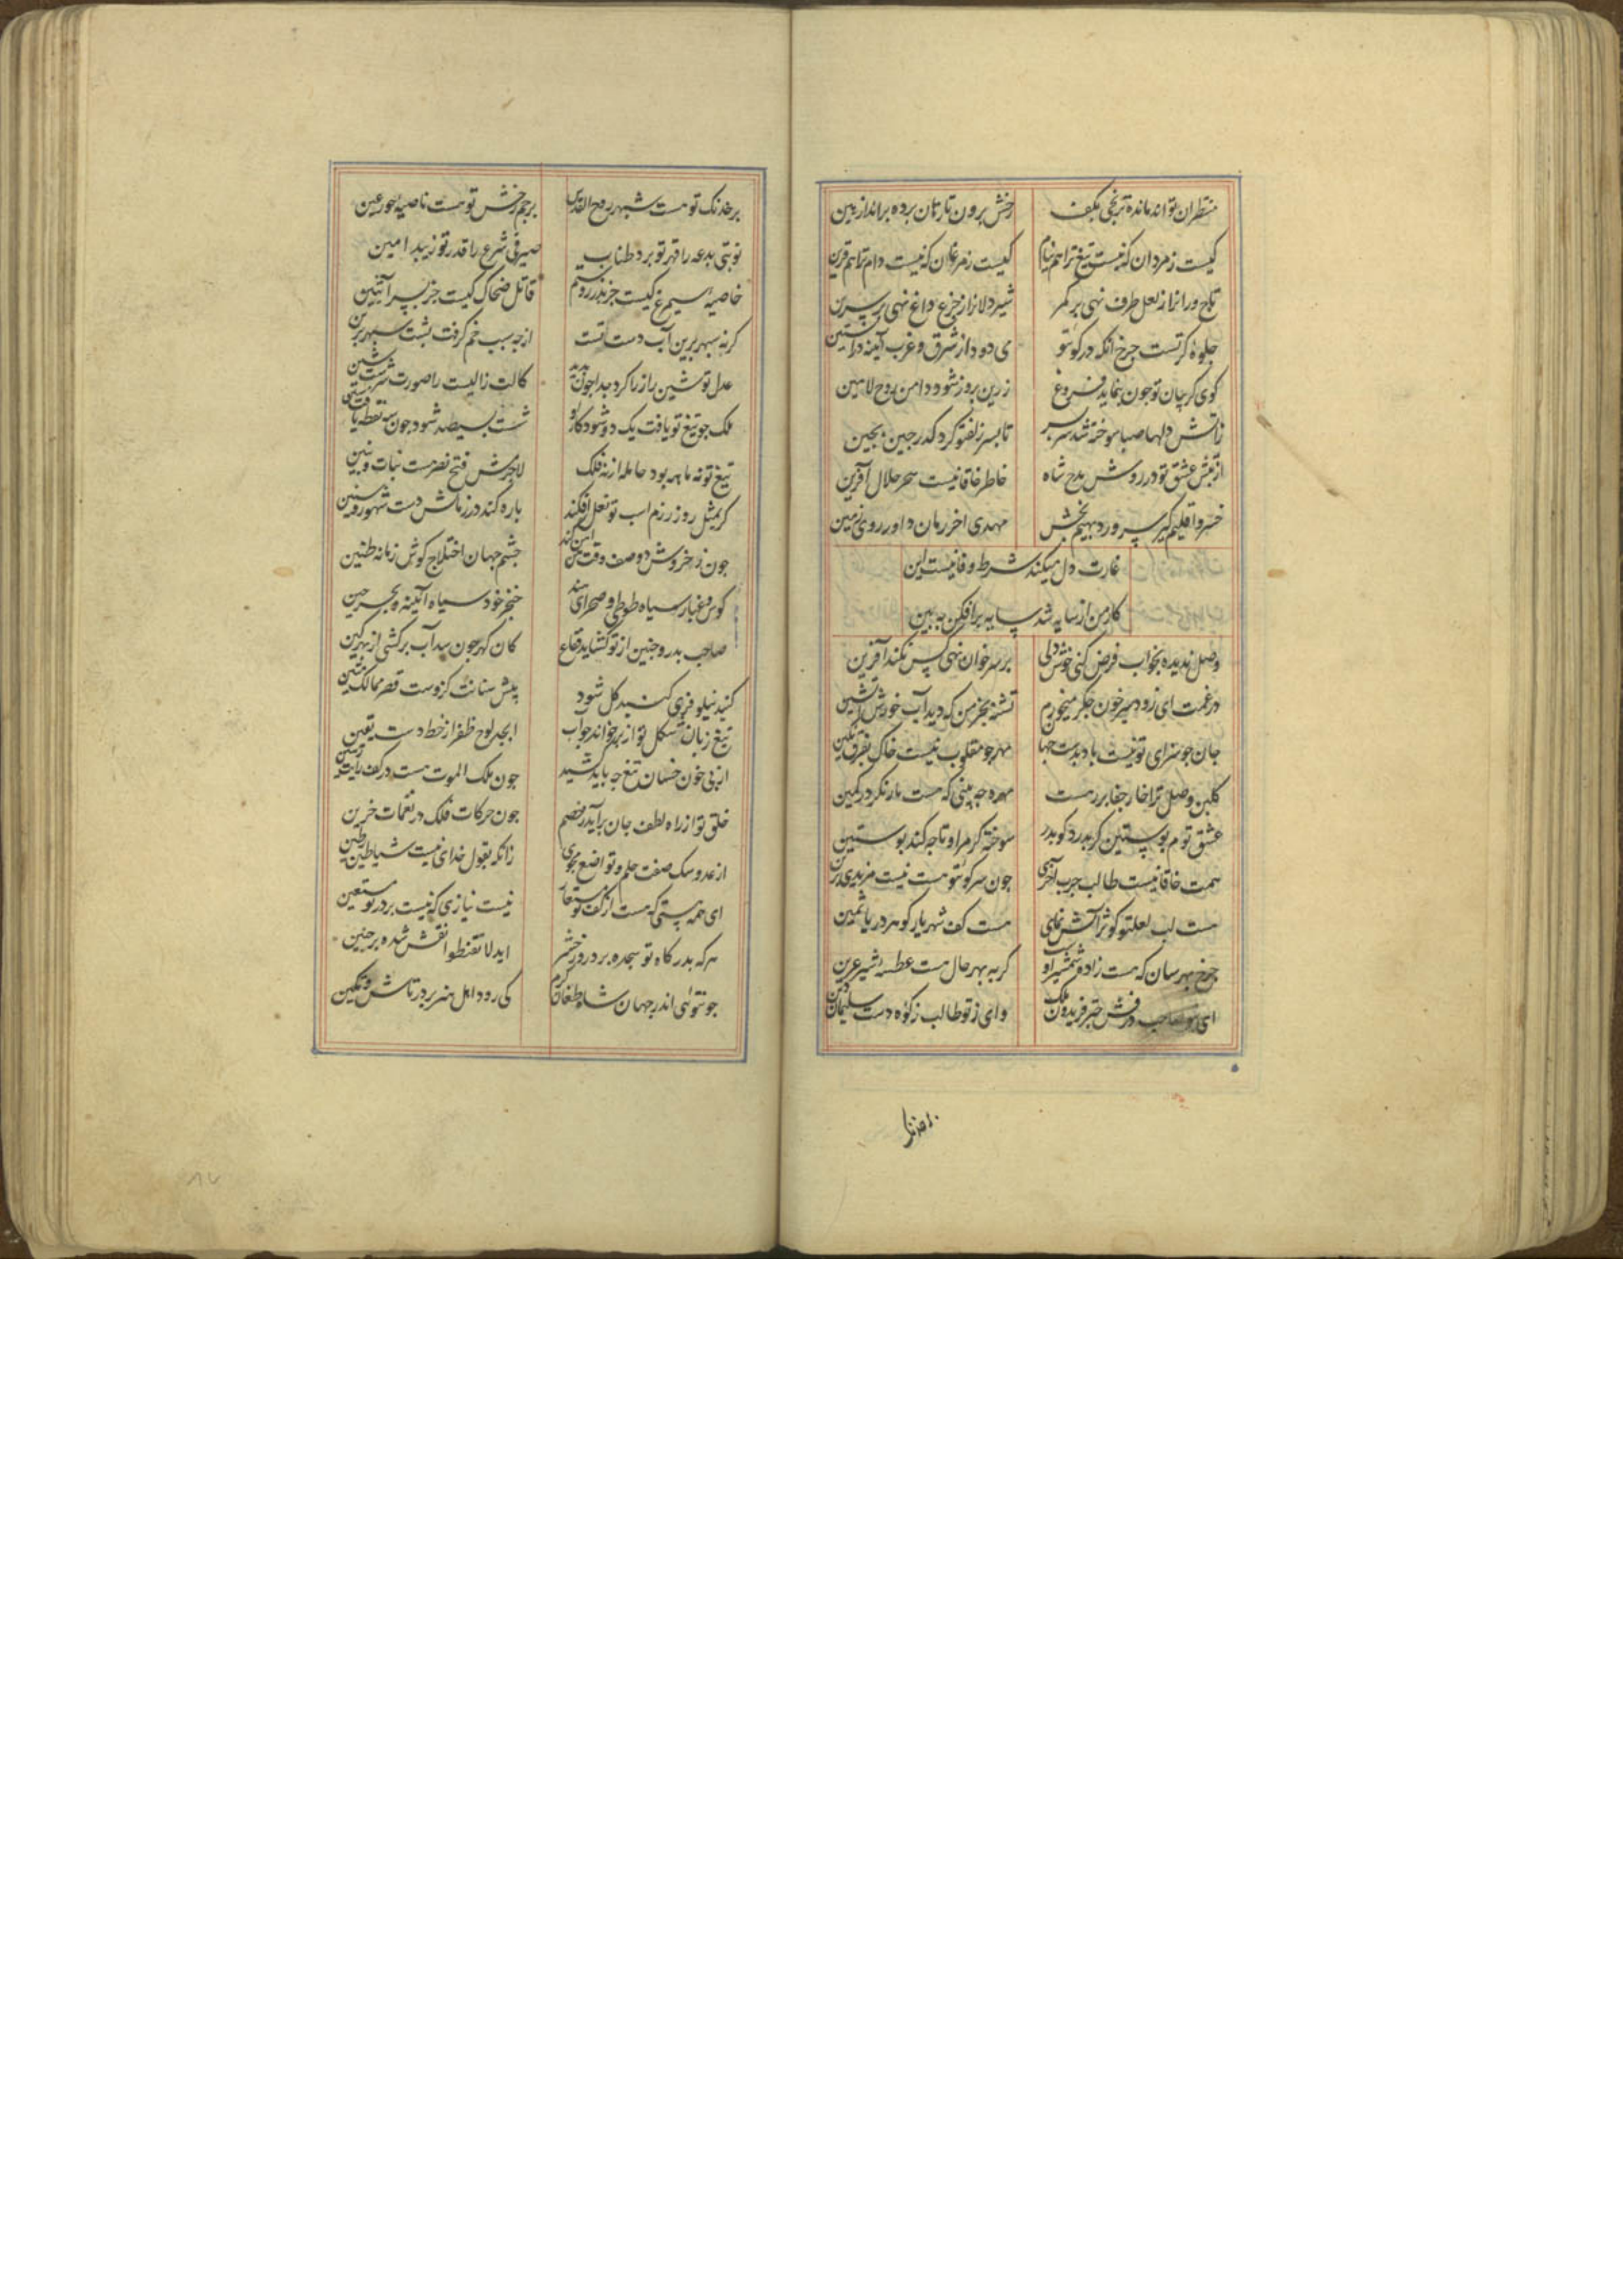 منتظران تو اند مانده ترنجی بکف رخش برون تاز تان پرده برانداز هین
کیست ز مردان که نیست تیغ ترا هم نیام کیست ز مرغان که نیست دام ترا هم قرین
تاج ورانرا ز لعل طرف نهی بر کمر شیردلانرا ز جزع داغ نهی بر سرین
جلوه کر تست چرخ آنکه در کوی تو می دود از شرق و غرب آینه در آستین
کوی کریبان تو جون بنماید فروغ زرین بروز شود دامن روح الامین
زآتش دلها صبا سوخته شد سر بسر تا بسر زلف تو کرد کذر جین بجین
از تپش عشق تو در روش مدح شاه خاطر خاقانیست سحر حلال آفرین
خسرو اقلیم کیر سرور دیهیم بخش مهدی اخر زمان داور روی زمین
غارت دل میکند شرط وفا نیست این
کار من از سایه شد سایه برافکن ببین
وصل ندیده بخواب فرض کنی خوش دلی بر سر خوان تهی کس نکند آفرین
در غمت ای زود سیر خون جکر میخورم تشنه بجز من که دید آب خورش آتشین
جان جو سزای تو نیست باد بدست جهان مهر جو مقلوب نیست خاک بفرق نکین
کلبن وصل ترا خار جفا بر درست مهره جه بینی که هست مار نکر در کمین
عشق توم پوستین کر بدرد کو بدر سوخته کرم را و تا جه کند پوستین
همت خاقانیست طالب جرب آخری جون سر کوی تو هست نیست مزیدی برین
هست لب لعل تو کوثر آتش نمای هست کف شهریار کوهر دریا ثمین
جرخ بهر سان که هست زاده شمشیر اوست کربه بهر حال هست عطسه شیر عرین
ای صاحب درفش جتر فریدون ملک وای ز تو طالب زکوة دست سلیمان
بر خدنک
بر خدنک تو هست شبهر روح القدس برجم رخش تو هست ناصیه حور عین
نوبتی بدعه را قهر تو برد طناب صیرفی شرع را قدر تو زیبد امین
خاصیه سیمرغ کیست جز بدر روستم قاتل ضحاک کیست جز بسر آبتین
کرنه سپهر برین آب دست تست از جه سبب خم کرفت پشت سپهر برین
عدل تو شین را ز را کرد جدا جون بدید کالت زالیست را صورت شین
ملک جو تیغ تو یافت یک دو شود کار او شست بسیصد شود جون سه نقطه یافت سین
تیغ تو نه ماهه بود حامله از نه فلک لاجرمش فتح و نصر هست بنات و بنین
کر بمثل روز رزم اسب تو نعل افکند یاره کند در زمانش دست شهور و سنین
جون ز خروش دو صف وقت جشم جهان اختلاج کوش زمانه طنین
کوس و غبار سیاه طوطی و صحرای هند خنجر و خود سیاه آینه و بحر جین
صاحب بدر و حنین از تو کشاید قفاع کان کهر جون سداب برکشی از بهر کین
کنبد نیلوفری کنبد کل شود بیش سنانت کزوست قصر ممالک متین
تیغ زبان شکل تو از بر خواند جواب ابجد لوح ظفر از خط دست یقین
از پی خون خسان تیغ جه باید کشید جون ملک الموت هست در کف رایت رهین
خلق تو از راه لطف جان برآید ز خصم جون حرکات فلک در نغمات حزین
از عدو سک صفت حلم و تواضع مجوی زانکه بقول خدای نیست شیاطین ز طین
ای همه هستی که هست از کف تو مستعار نیست نیازی که نیست بر در تو مستعین
هر که بدرکاه تو سجده برد روز حشر اید لا تقنطوا نقش شده بر جبین
جون توئی اندر جهان شاه طغان کرم کی رود اهل هنر بر در تاش و تکین